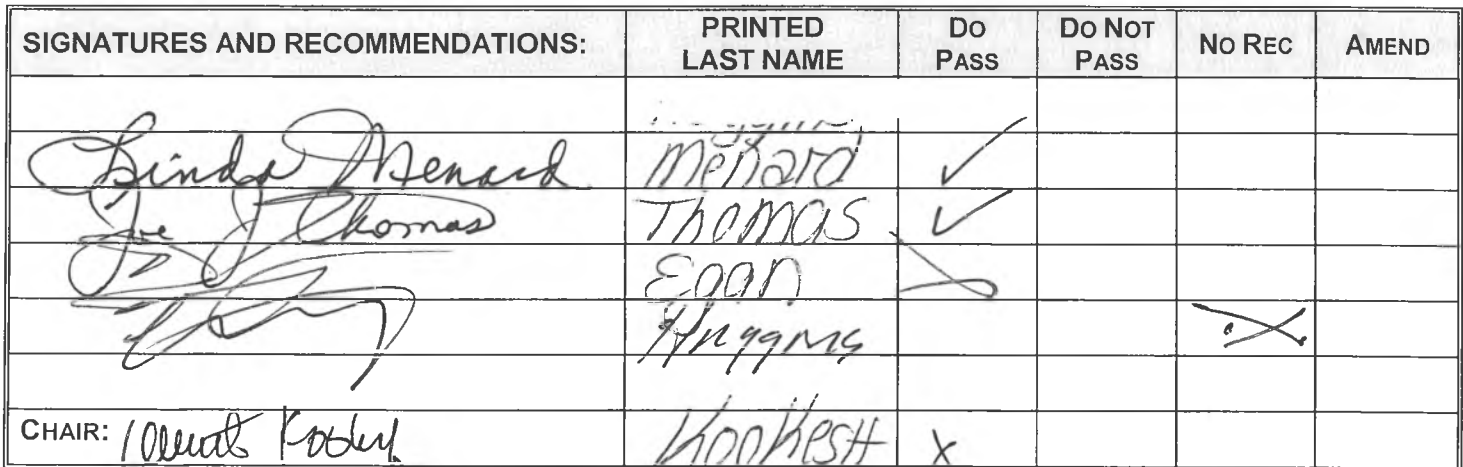 SIGNATURES AND RECOMMENDATIONS: PRINTED LAST NAME DO PASS DO NOT PASS NO REC AMEND
Linda Menard Menard ✓
Joe J Thomas Thomas ✓
Egan X
Huggins X
CHAIR: Kookesh X